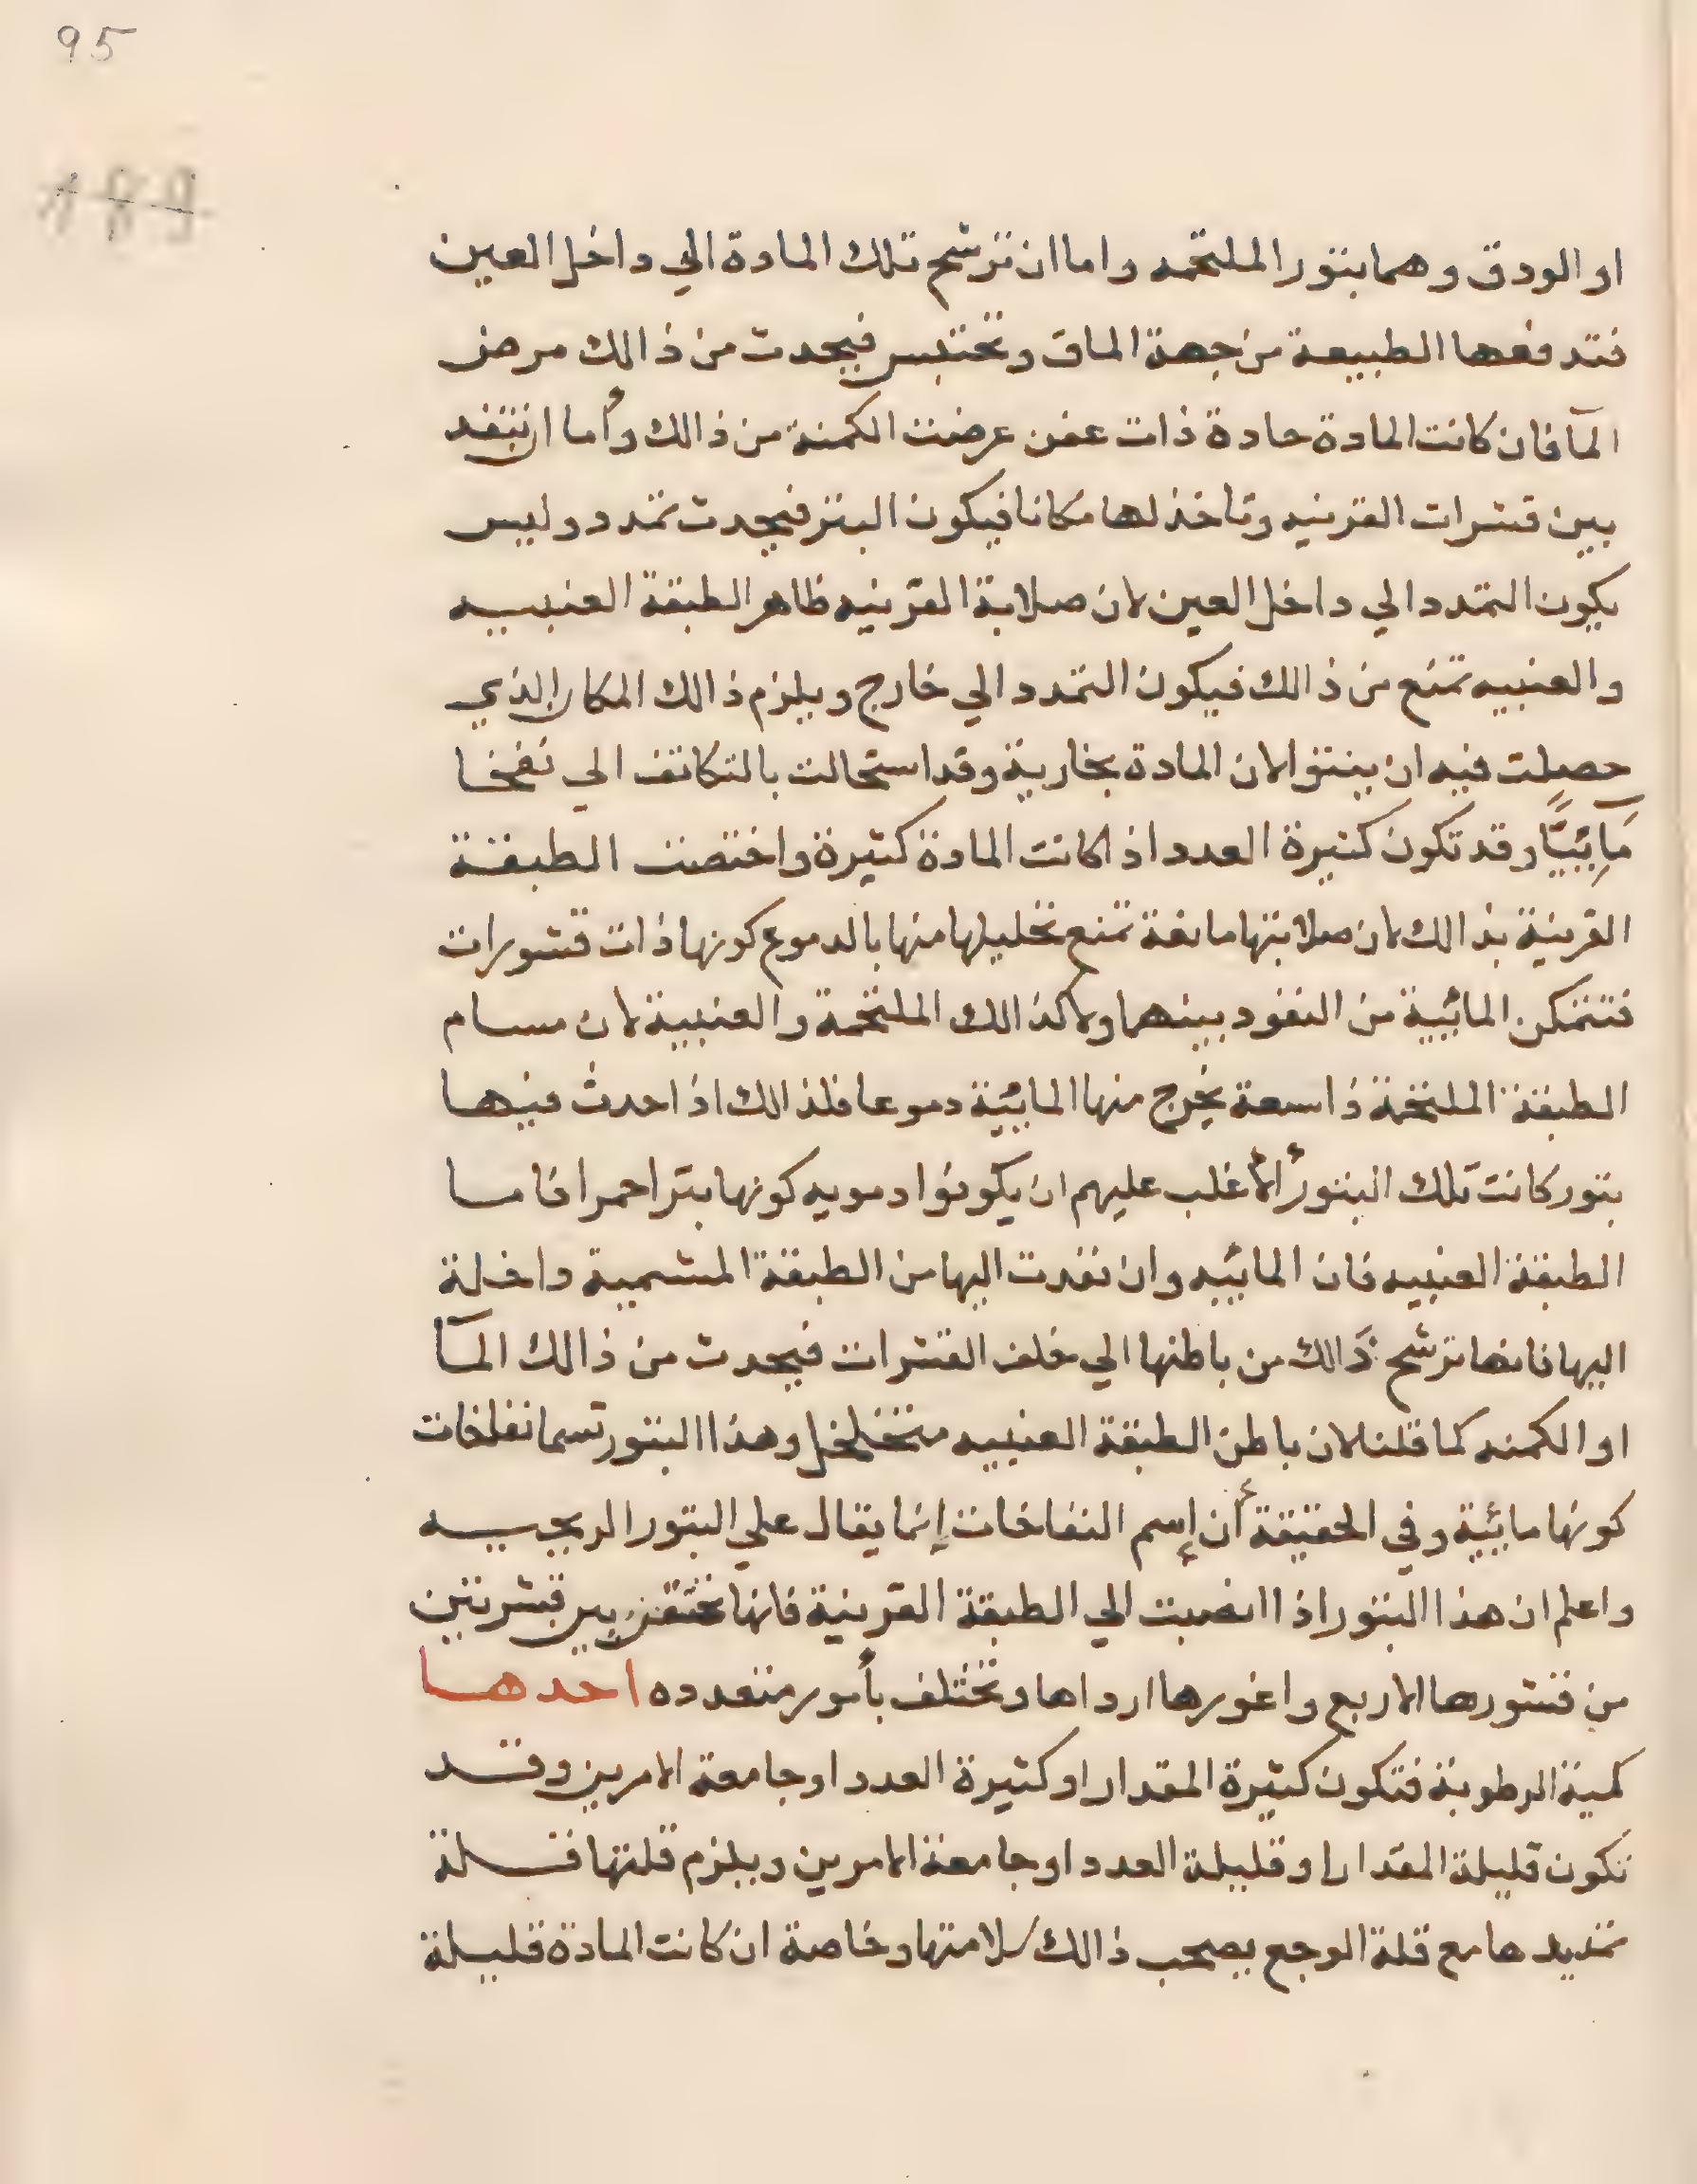 95
او الودق وهما بتور الملتحمه واما ان ترشح تلك المادة الي داخل العين
فتدفعها الطبيعة من جهة الماق وتحتبس فيحدث من ذالك مرض
المآ فان كانت المادة حادة ذات عفن عرضت الكمنة من ذالك وأما ان تنفد
بين قشرات القرنيه وتاخذ لها مكانا فيكون البثر فيحدث تمدد وليس
يكون التمدد الي داخل العين لان صلابة القرنيه ظاهر الطبقة العنبيه
والعنبيه تمنع من ذالك فيكون التمدد الي خارج ويلزم ذالك المكان الذي
حصلت فيه ان ينتوا لان المادة بخارية وقد استحالت بالتكاثف الي نفخا
مآئيًا وقد تكون كثيرة العدد اذا كانت المادة كثيرة واختصت الطبقة
القرنية بذالك لان صلابتها مانعة تمنع تحليلها منها بالدموع كونها ذات قشورات
فتتمكن المائية من النفود بينهما ولا كذالك الملتحمة والعنبية لان مسام
الطبقة الملتحمة ذا سعة يخرج منها المائية دموعا فلذالك اذا حدث فيها
بتور كانت تلك البتور ألاغلب عليهم ان يكونوا دمويه كونها بترا حمرا فاما
الطبقة العنبيه فان المائيه وان نفدت اليها من الطبقة المشمية داخلة
اليها فانها ترشح ذالك من باطنها الي خلف القشرات فيحدث من ذالك المآ
او الكمنه كما قلنا لان باطن الطبقة العنبيه متخلخل وهذا البتور تسما نفاخات
كونها مائية وفي الحقيقة أن إسم النفاخات إنما يقال علي البتور الريحيه
واعلم ان هذا البتور اذا انصبت الي الطبقة القرنية فانها تحتقن بين قشرتين
من قشورها الاربع واغورها ارداها وتختلف بأمور متعدده احدها
كمية الرطوبة فتكون كثيرة المقدار او كثيرة العدد او جامعة الامرين وقد
تكون قليلة المقدار او قليلة العدد او جامعة الامرين ويلزم قلتها قلة
تمديدها مع قلة الوجع يصحب ذالك سلامتها وخاصة ان كانت المادة قليلة